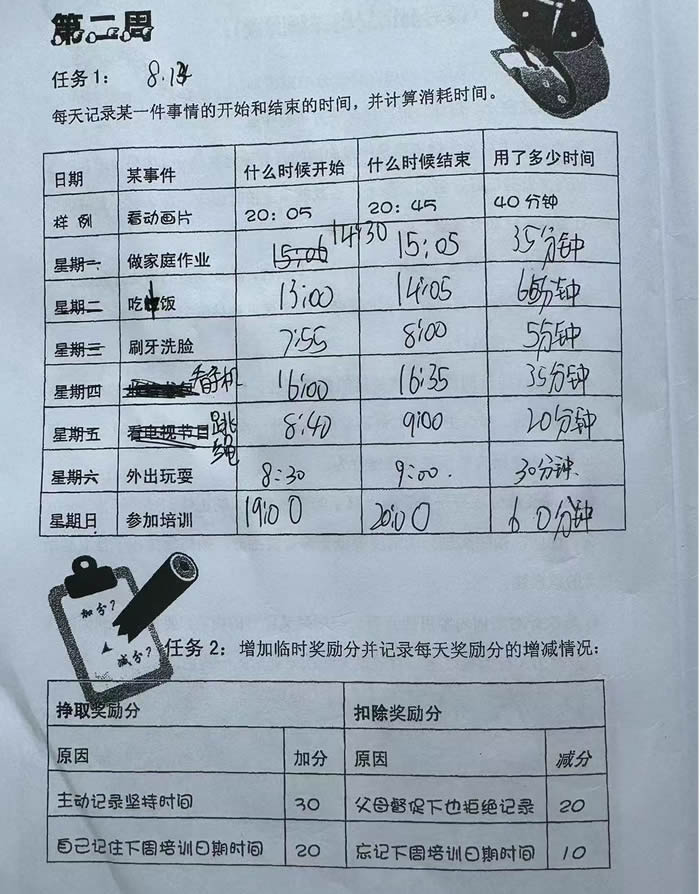 第二周
任务1： 8.14
每天记录某一件事情的开始和结束的时间，并计算消耗时间。
日期 某事件 什么时候开始 什么时候结束 用了多少时间
样 例 看动画片 20：05 20：45 40分钟
星期一 做家庭作业 15:06 14:30 15:05 35分钟
星期二 吃饭 13:00 14:05 65分钟
星期三 刷牙洗脸 7:55 8:00 5分钟
星期四 看手机 16:00 16:35 35分钟
星期五 看电视节目 跳绳 8:40 9:00 20分钟
星期六 外出玩耍 8:30 9:00. 30分钟.
星期日 参加培训 19:00 20:00 60分钟
加分？
减分？
任务 2：增加临时奖励分并记录每天奖励分的增减情况：
挣取奖励分 扣除奖励分
原因 加分 原因 减分
主动记录坚持时间 30 父母督促下也拒绝记录 20
自己记住下周培训日期时间 20 忘记下周培训日期时间 10